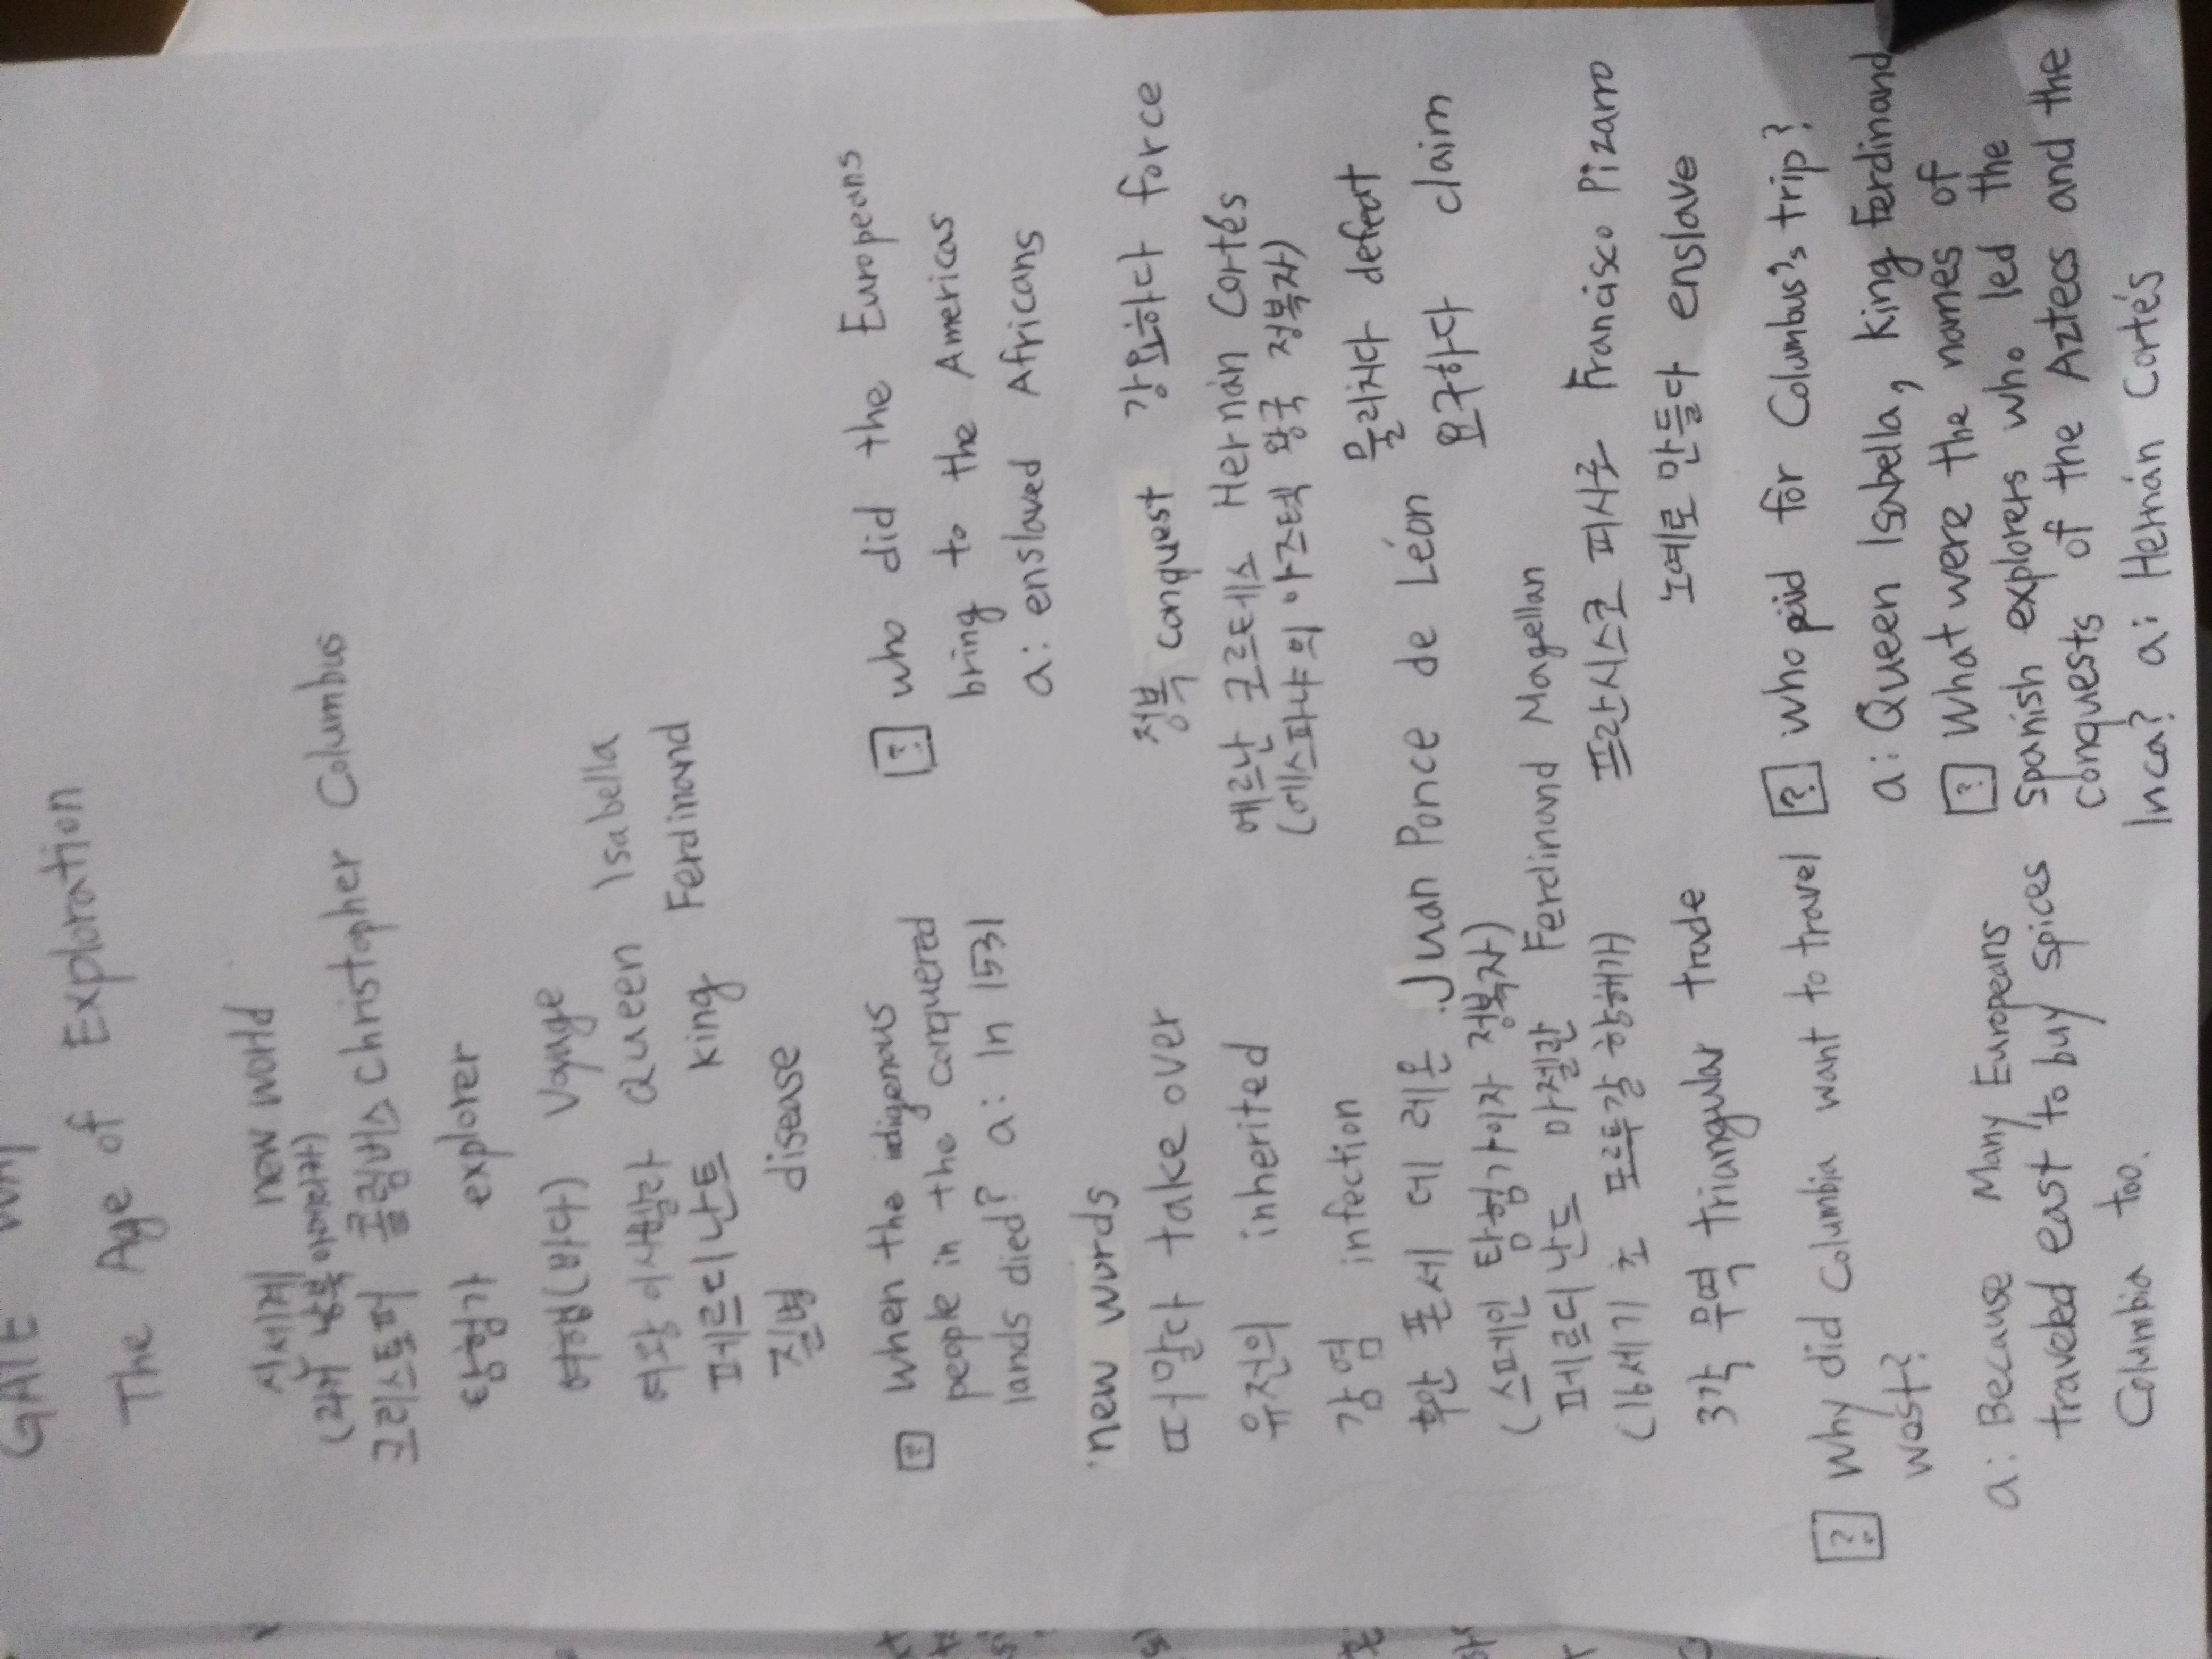 GATE
The Age of Exploration
신세계 new world
(과거 남북 아메리카)
크리스토퍼 콜럼버스 Christopher Columbus
탐험가 explorer
여행(바다) Voyage
여왕 이사벨라 Queen Isabella
페르디난트 King Ferdinand
질병 disease
? When the indigenous
people in the conquered
lands died? a: In 1531
? who did the Europeans
bring to the Americas
a: enslaved Africans
new words
빼앗다 take over
유전의 inherited
감염 infection
후안 폰세 데 레온 Juan Ponce de Léon
(스페인 탐험가이자 정복자)
페르디난드 마젤란 Ferdinand Magellan
(16세기 초 포르투갈 항해가)
3각 무역 triangular trade
정복 conquest 강요하다 force
에르난 코르테스 Hernán Cortés
(에스파냐의 아즈텍 왕국 정복자)
물리치다 defeat
요구하다 claim
프란시스코 피사로 Francisco Pizarro
노예로 만들다 enslave
? Why did Columbia want to travel
west?
a: Because Many Europeans
traveled east to buy spices
Columbia too.
? who paid for Columbus's trip?
a: Queen Isabella, King Ferdinand
? What were the names of
Spanish explorers who led the
conquests of the Aztecs and the
Inca? a: Hernán Cortés